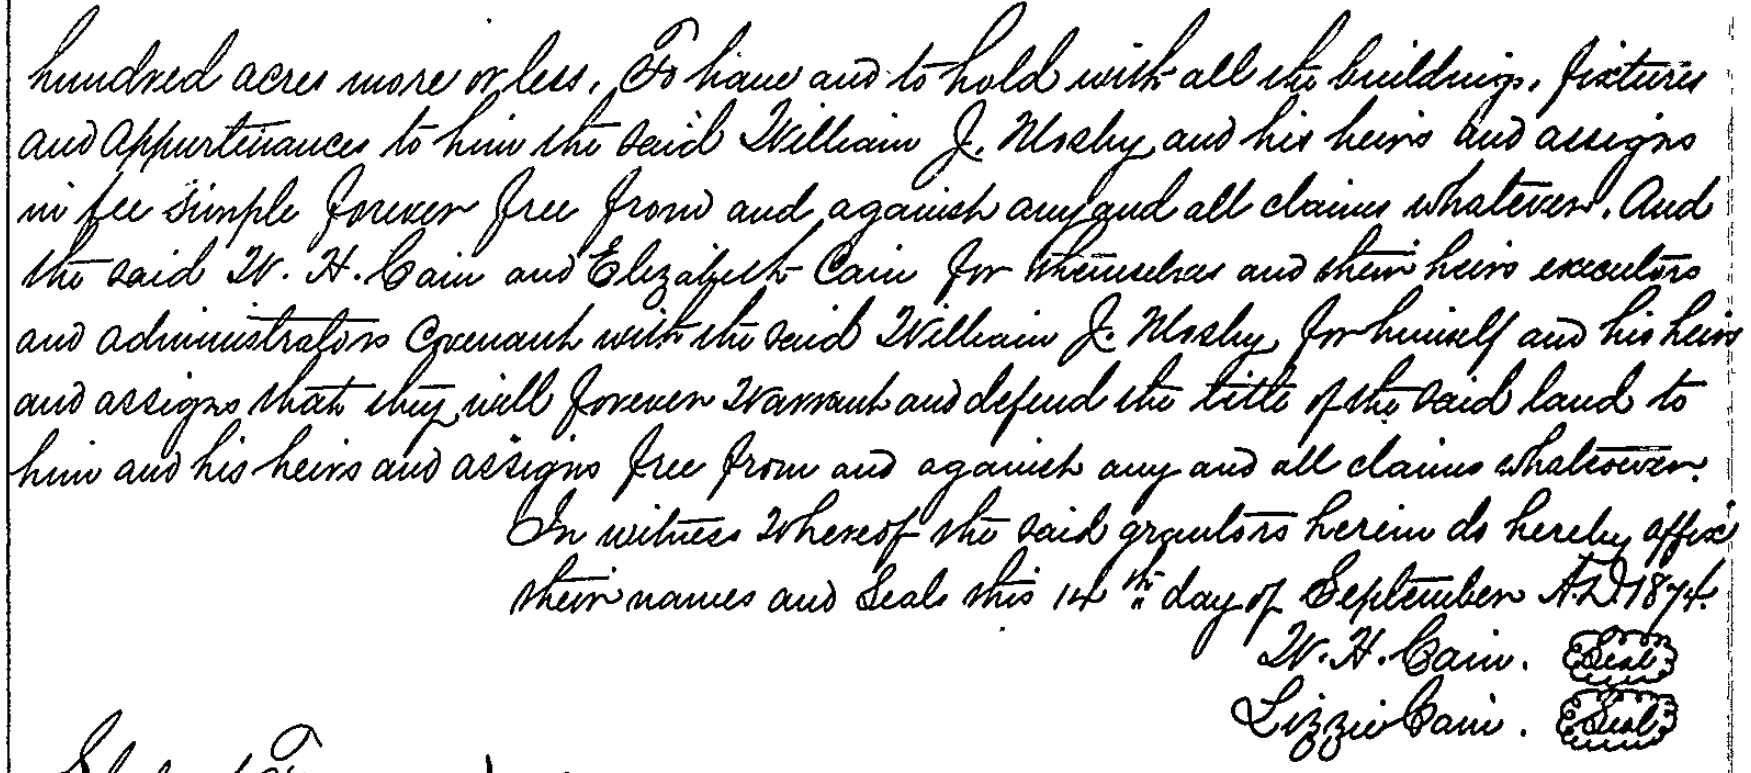 hundred acres more or less. To have and to hold with all the buildings, fixtures
and appurtenances to him the said William J. Mosby and his heirs and assigns
in fee simple forever free from and against any and all claims whatever. And
the said W. H. Cain and Elizabeth Cain for themselves and their heirs executors
and administrators covenant with the said William J. Mosby for himself and his heirs
and assigns that they will forever Warrant and defend the title of the said land to
him and his heirs and assigns free from and against any and all claims whatsoever.
In witness Whereof the said grantors herein do hereby affix
their names and Seals this 14th day of September A.D. 1874.
W. H. Cain. Seal
Lizzie Cain. Seal